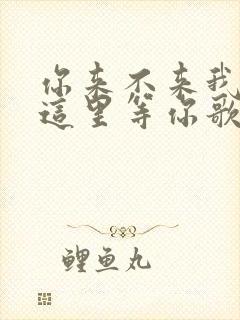 你来不来我
這里等你歌
鲤鱼丸